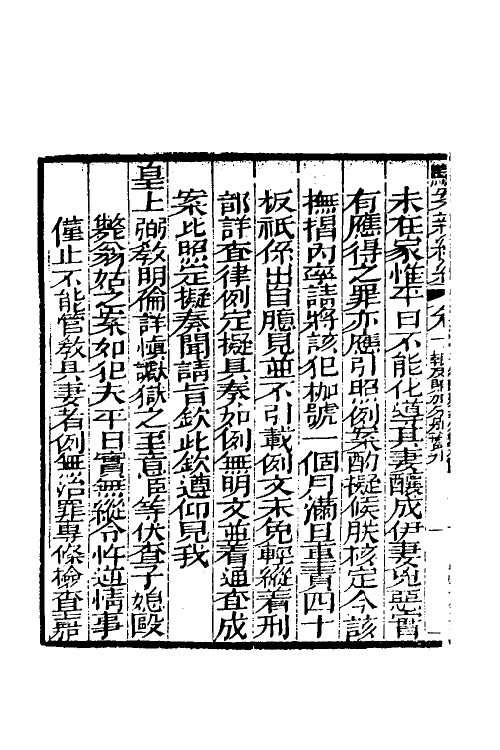 未在家惟平日不能化導其妻釀成伊妻兇惡實
有應得之罪亦應引照例案酌擬候朕核定今該
撫摺內率請將該犯枷號一個月滿日重責四十
板祇係出自臆見並不引載例文未免輕縱着刑
部詳查律例定擬具奏如例無明文並着通查成
案比照定擬奏聞請旨欽此欽遵仰見我
皇上弼教明倫詳慎讞獄之至意臣等伏查子媳毆
斃翁姑之案如犯夫平日實無縱令忤逆情事
僅止不能管教其妻者例無治罪專條檢查